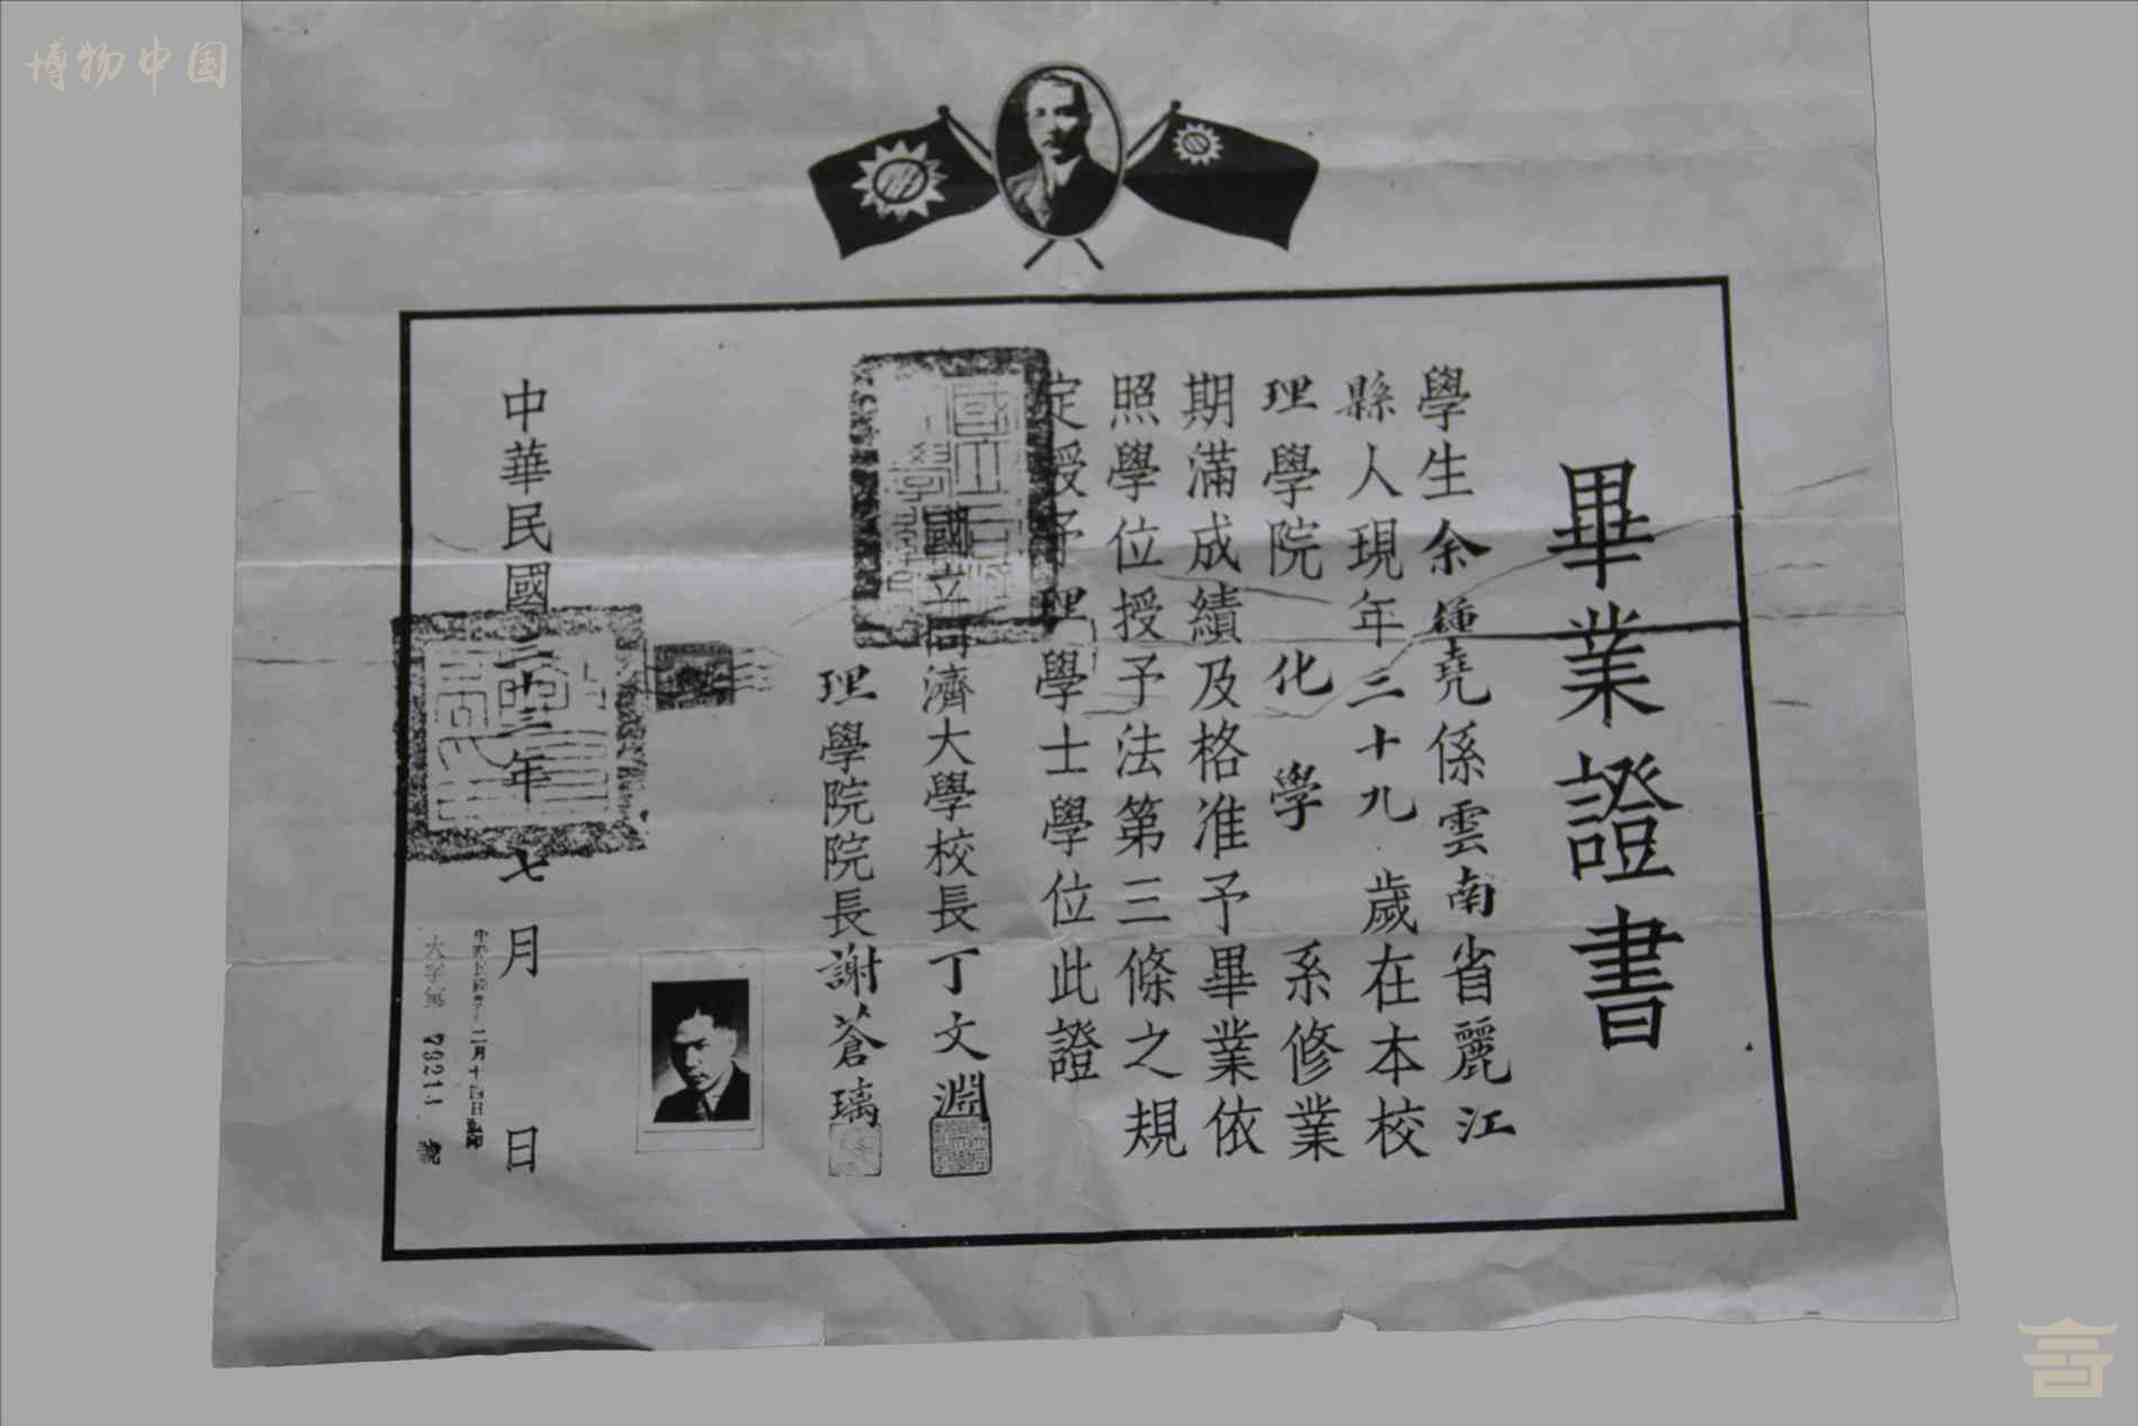 博物中国
畢業證書
學生余鍾堯係雲南省麗江
縣人現年二十九歲在本校
理學院化學系修業
期滿成績及格准予畢業依
照學位授予法第三條之規
定授予理學士學位此證
國立同濟大學校長丁文淵
理學院院長謝蒼璃
中華民國三十三年七月日
二月十四日
大字第 號